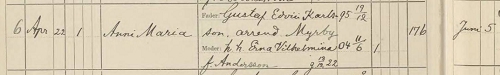 Fader: Gustaf Edvin Karls- 95 19/12
6 Apr. 22 1 Anni Maria son, arrend. Myrby 176 Juni 5
Moder: h. h. Erna Vilhelmina 04 11/6 1
f. Andersson g 22